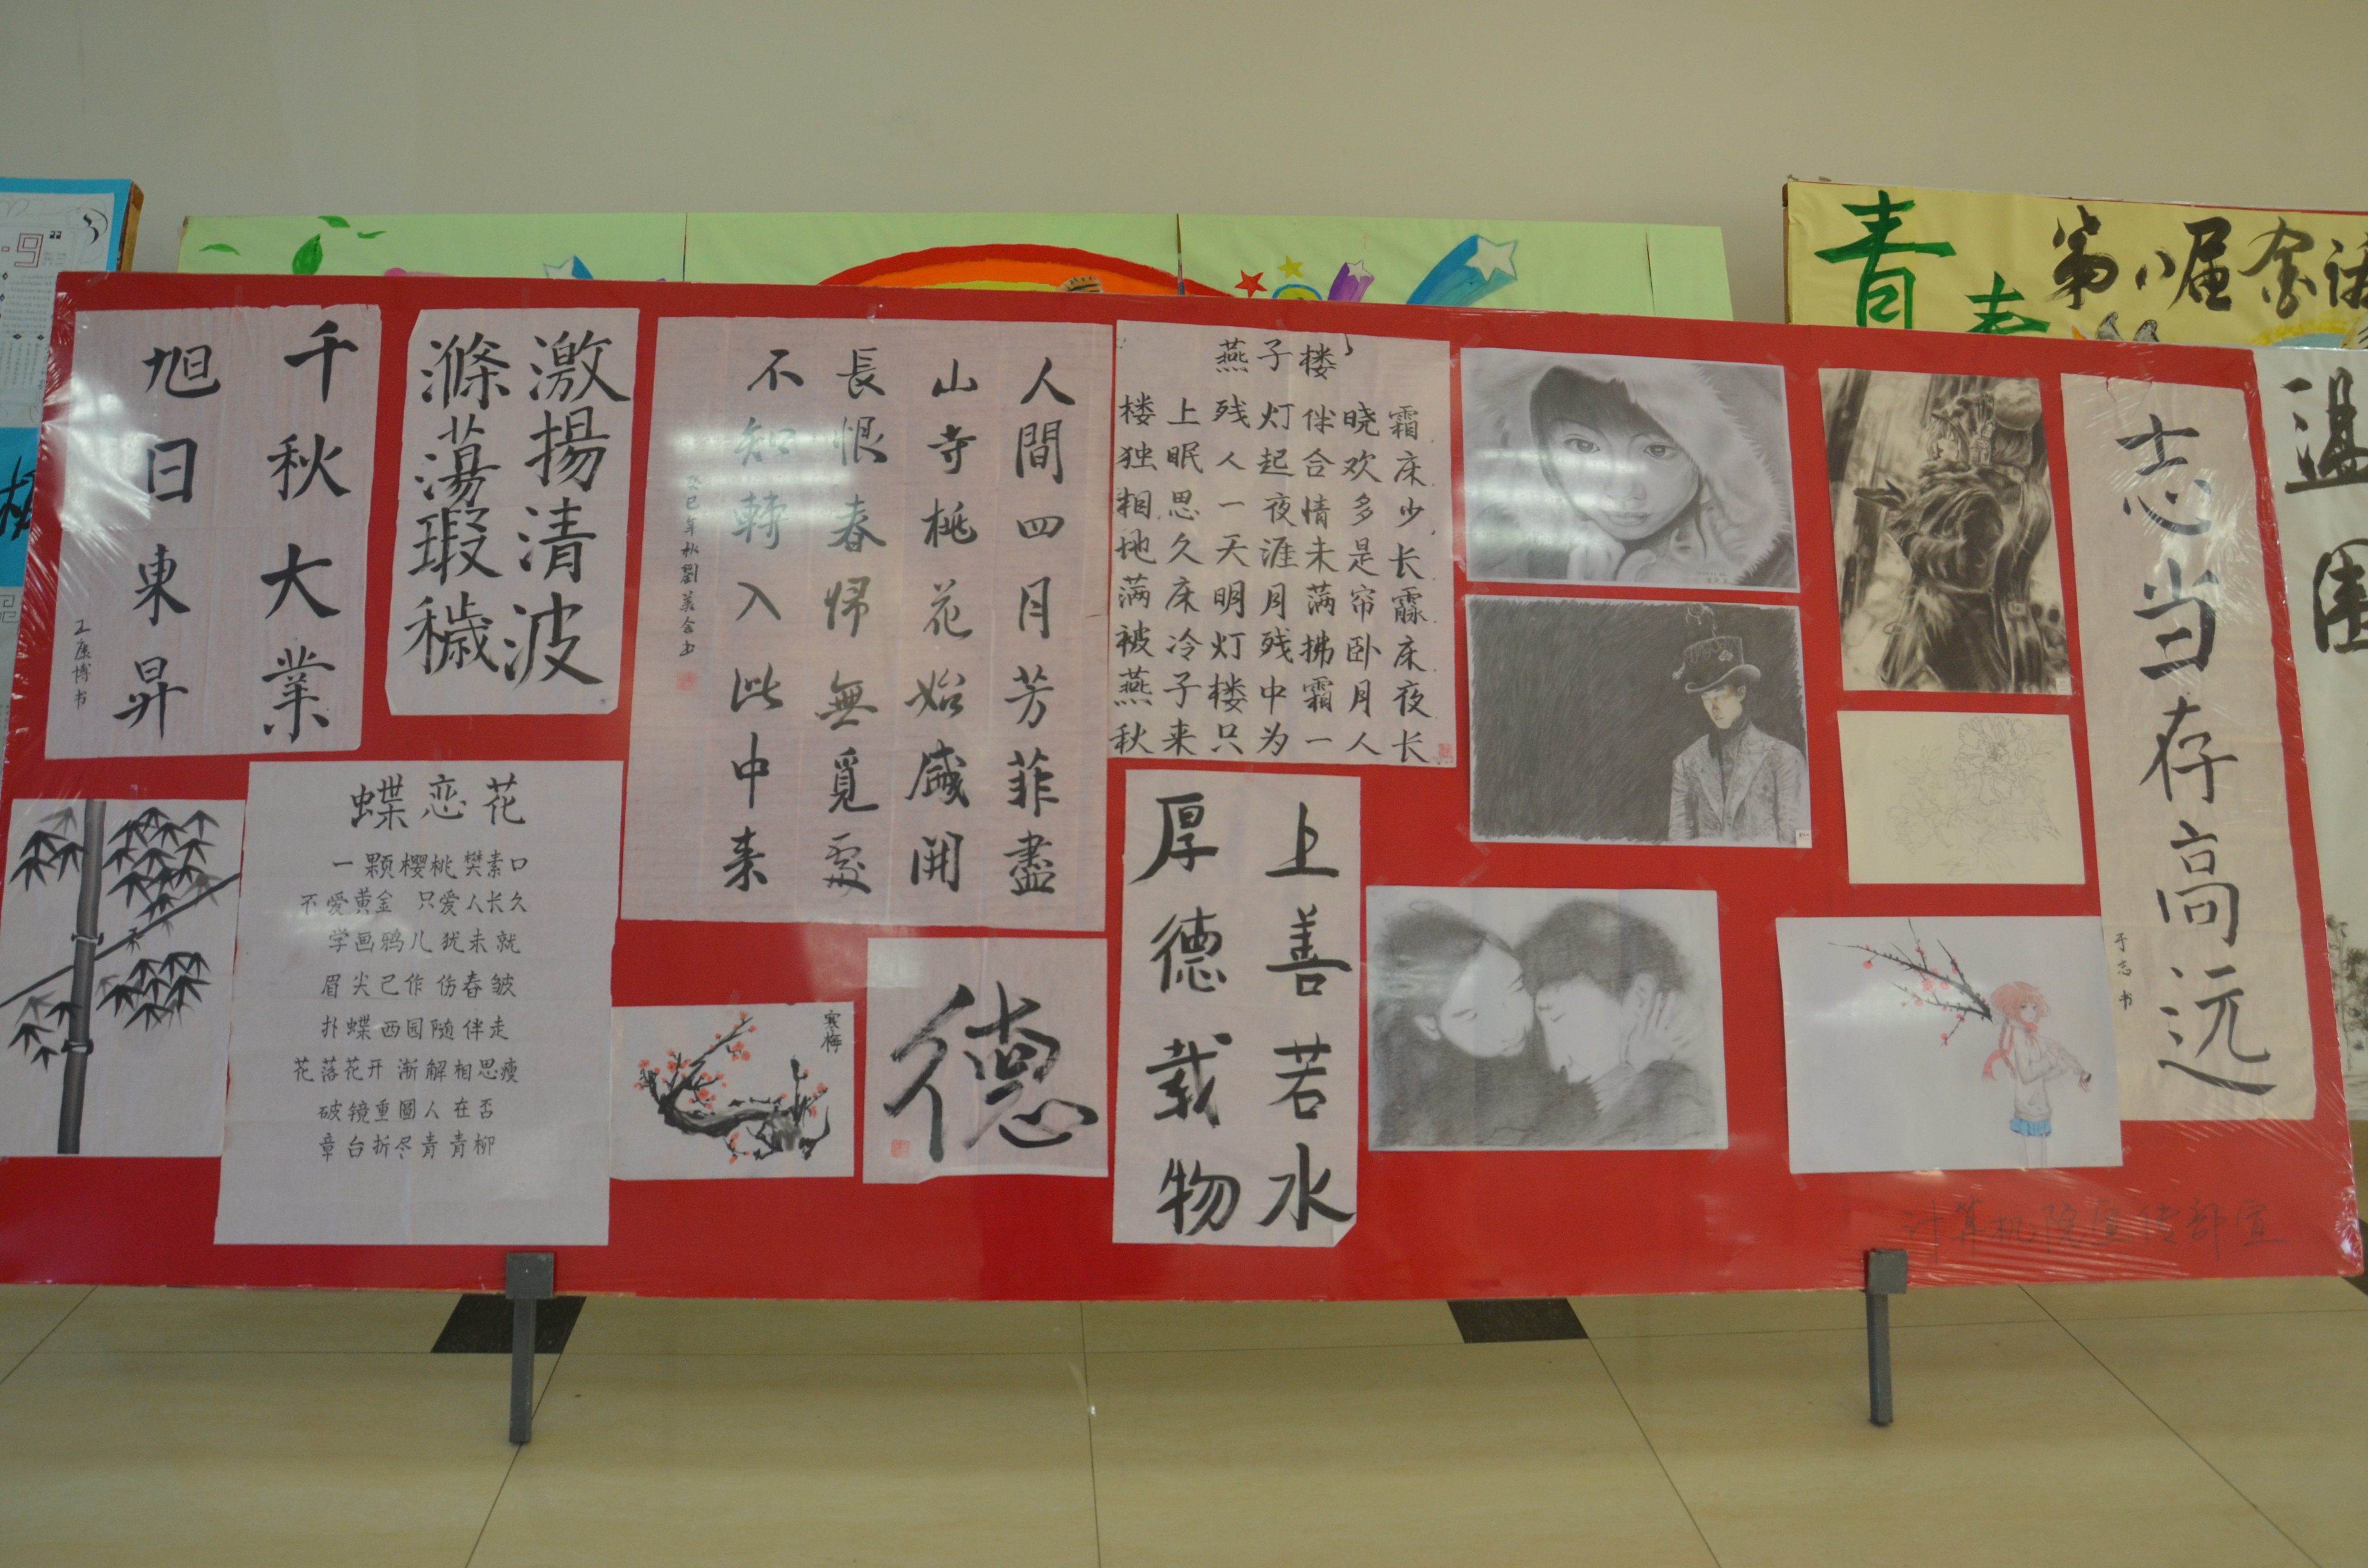 千秋大業
旭日東昇
王康博书
激揚清波
滌蕩瑕穢
人間四月芳菲盡
山寺桃花始盛開
長恨春歸無覓處
不知轉入此中来
癸巳年秋劉
燕子楼
楼上残灯伴晓霜
独眠人起合欢床
相思一夜情多少
地久天涯未是长
满床明月满帘
被冷灯残拂卧床
燕子楼中霜月夜
秋来只为一人长
志当存高远
于志书
蝶恋花
一颗樱桃樊素口
不爱黄金 只爱人长久
学画鸦儿犹未就
眉尖已作伤春皱
扑蝶西园随伴走
花落花开 渐解相思瘦
破镜重圆人在否
章台折尽青青柳
寒梅
德
上善若水
厚德载物
计算机院宣传部宣
青春
第八届金话